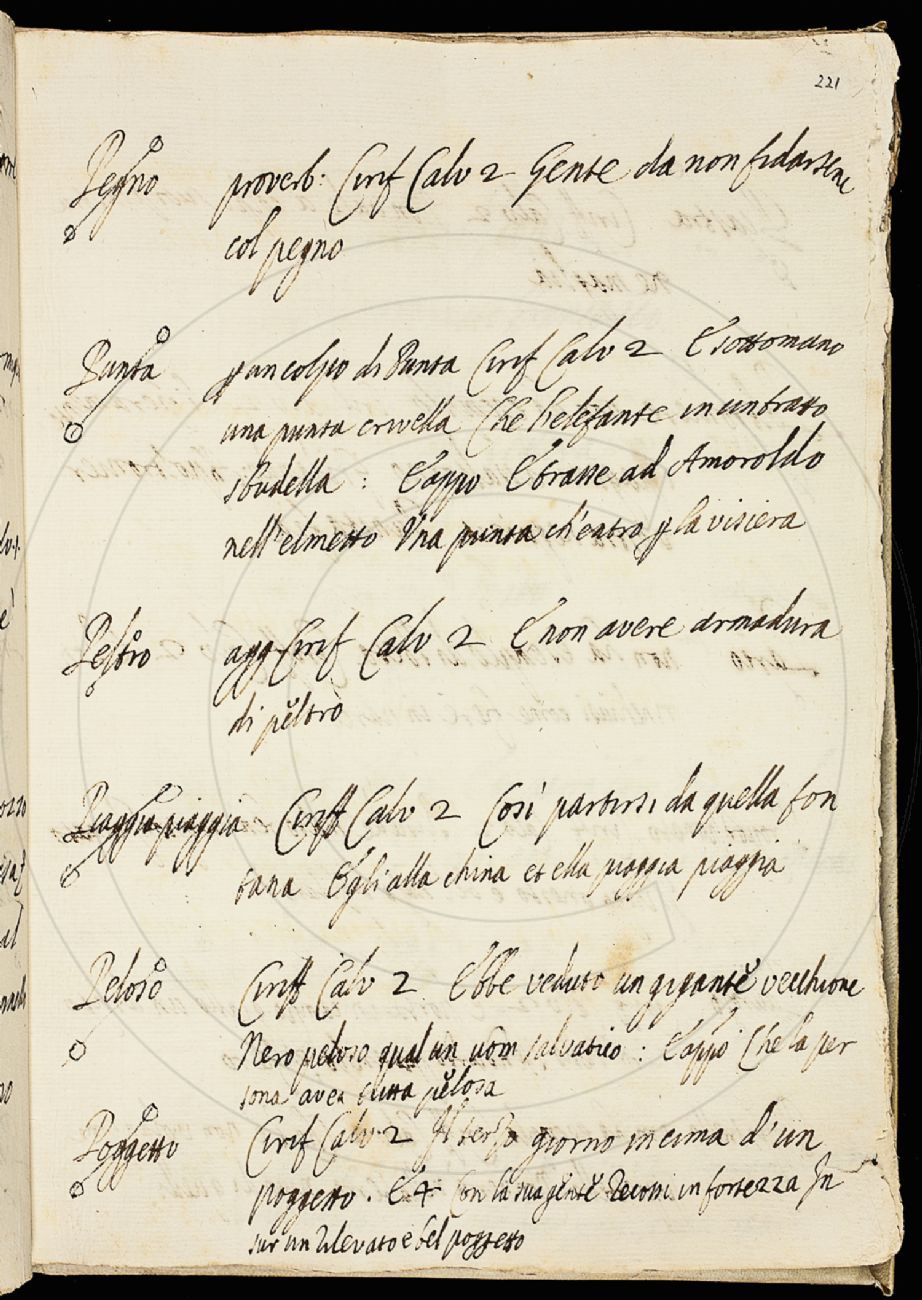 221
Pegno proverb: Cirif Calv 2 Gente da non fidarsene
col pegno
Punta p un colpo di Punta Cirif Calv 2 E sottomano
una punta crivella Che l'elefante in un tratto
sbudella : E appo E trasse ad Amoroldo
nell'elmetto Una punta ch'entro p la visiera
Peltro agg Cirif Calv 2 E non avere armadura
di peltro
Piaggia piaggia Ciriff Calv 2 Così partirsi da quella fon
tana Egli alla china et ella piaggia piaggia
Peloso Ciriff Calv 2 Ebbe veduto un gigante vecchione
Nero peloso qual un uom salvatico : E appo Che la per
sona avea tutta pelosa
Poggetto Cirif Calv 2 Il terzo giorno in cima d'un
poggetto. E 4 Con la sua gente recossi in fortezza In
sur un rilevato e bel poggetto